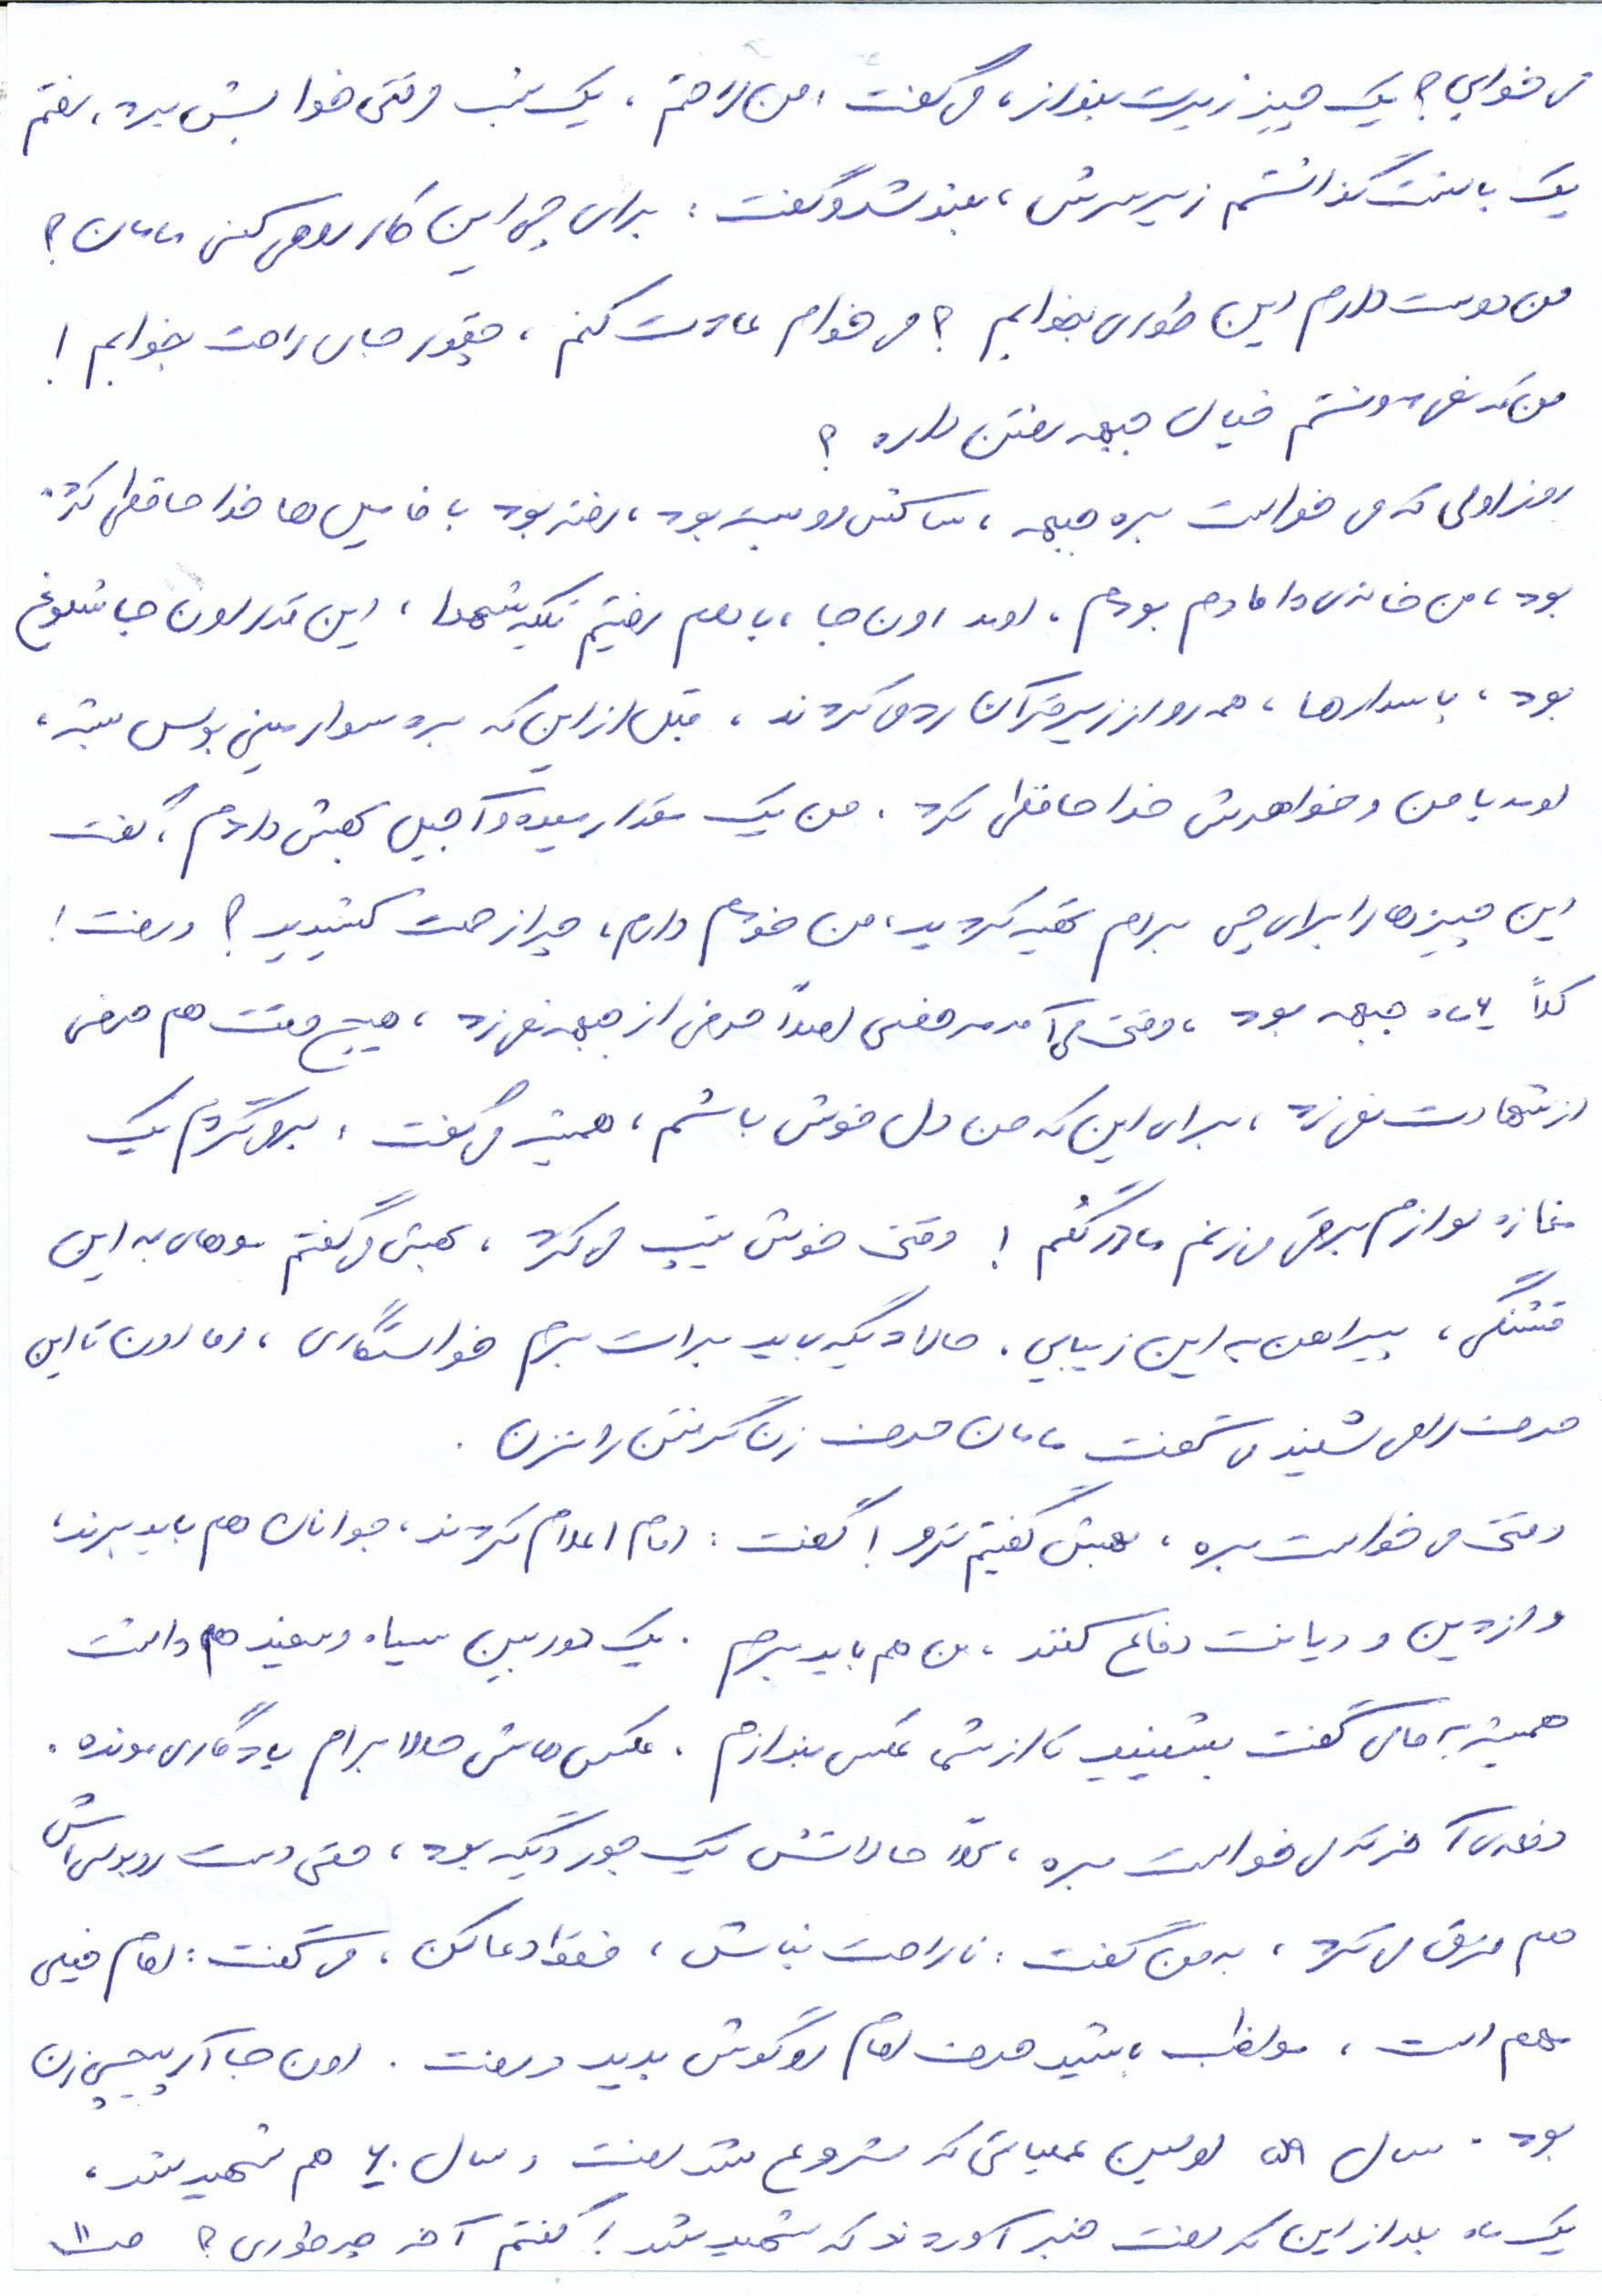 می خوابی؟ یک چیز زیرت بنداز، می گفت: من راحتم، یک شب وقتی خوابش برد، رفتم
یک بالشت گذاشتم زیر سرش، بلند شد و گفت: برای چی این کار رو می کنی مامان؟
من دوست دارم این طوری بخوابم؟ می خوام عادت کنم، چقدر جای راحت بخوابم!
من که نمی دونستم خیال جبهه رفتن داره؟
روز اولی که می خواست بره جبهه، ساکش رو بسته بود، رفته بود با فامیل ها خدا حافظی کرده
بود، من خانه ی دامادم بودم. اومد اون جا، با هم رفتیم تکیه شهدا، این قدر اون جا شلوغ
بود، پاسدارها، همه رو از زیر قرآن رد می کردند، قبل از این که بره سوار مینی بوس بشه،
اومد با من و خواهرش خدا حافظی کرد. من یک مقدار میوه و آجیل بهش دادم، گفت
این چیزها را برای چی برام تهیه کردید، من خودم دارم، چرا زحمت کشیدید؟ و رفت!
کلاً ۶ ماه جبهه بود، وقتی می آمد مرخصی اصلاً حرفی از جبهه نمی زد، هیچ وقت هم حرفی
از شهادت نمی زد، برای این که من دل خوش باشم، همیشه می گفت: برمی گردم یک
مغازه لوازم برقی می زنم مادر گلم! وقتی خوش تیپ می کرد، بهش می گفتم موهای به این
قشنگی، پیراهن به این زیبایی. حالا دیگه باید برات برم خواستگاری، اما اون تا این
حرف را می شنید می گفت مامان حرف زن گرفتن را نزن.
وقتی می خواست بره، بهش گفتیم نرو! گفت: امام اعلام کردند، جوانان هم باید برند،
و از دین و دیانت دفاع کنند، من هم باید برم. یک دوربین سیاه و سفید هم داشت
همیشه به ما می گفت بشینید تا از شما عکس بندازم. عکس هاش حالا برام یادگاری مونده.
دفعه ی آخر که می خواست بره، کلاً حالاتش یک جور دیگه بود، حتی دست رو بوسی اش
هم فرق می کرد، به من گفت: ناراحت نباش، فقط دعا کن، می گفت: امام خیلی
مهم است، مواظب باشید حرف امام رو گوش بدید و رفت. اون جا آرپیجی زن
بود. سال ۵۹ اولین عملیاتی که شروع شد رفت و سال ۶۰ هم شهید شد،
یک ماه بعد از این که رفت خبر آوردند که شهید شد! گفتم آخه چه طوری؟ ص ۱۱